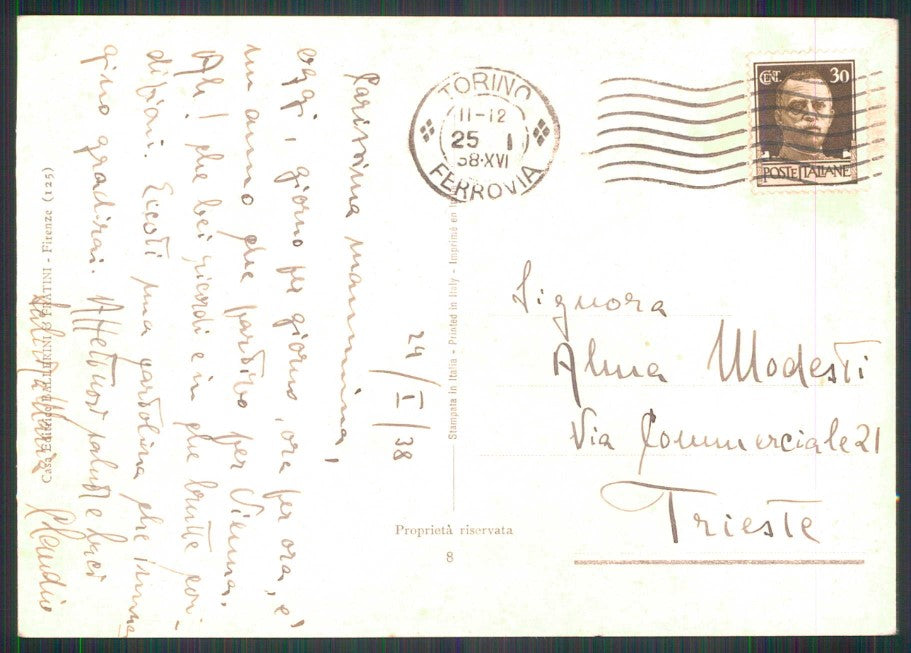 24/I/38
Carissima mammina,
oggi, giorno per giorno, ora per ora, è
un anno che partivo per Vienna.
Ah! che bei ricordi e in che brutte con-
dizioni. Eccoti una cartolina che
gradirai. Affettuosi saluti e baci
Claudio
TORINO
11-12
25 I
38·XVI
FERROVIA
CENT. 30
POSTE ITALIANE
Signora
Alma Modesti
Via Commerciale 21
Trieste
Stampata in Italia - Printed in Italy - Imprimé en
Proprietà riservata
8
Casa Editrice BALLERINI & FRATINI - Firenze (125)